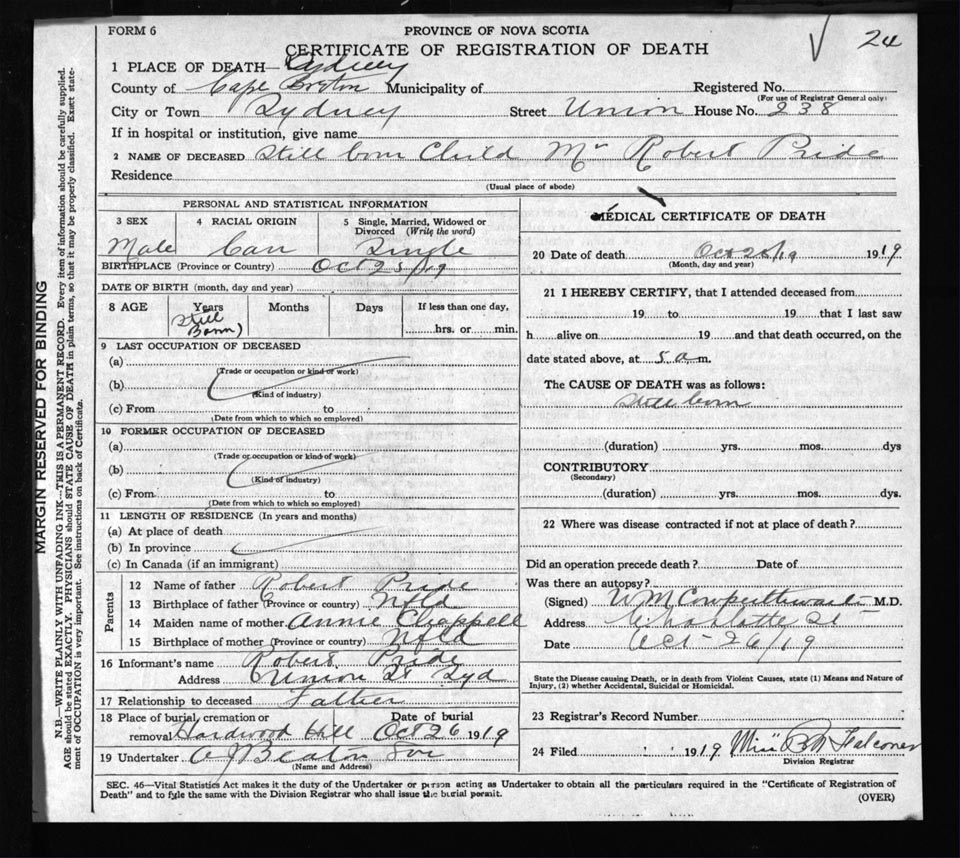 FORM 6
PROVINCE OF NOVA SCOTIA
24
CERTIFICATE OF REGISTRATION OF DEATH
1 PLACE OF DEATH— Sydney
County of Cape Breton Municipality of Registered No.
(For use of Registrar General only)
City or Town Sydney Street Union House No. 238
If in hospital or institution, give name
2 NAME OF DECEASED Still born Child Mr Robert Pride
Residence
(Usual place of abode)
PERSONAL AND STATISTICAL INFORMATION
3 SEX 4 RACIAL ORIGIN 5 Single, Married, Widowed or Divorced (Write the word)
Male Can Single
BIRTHPLACE (Province or Country) Oct 25/19
DATE OF BIRTH (month, day and year)
8 AGE Years Months Days If less than one day,
Still Born) hrs. or min.
9 LAST OCCUPATION OF DECEASED
(a)
(Trade or occupation or kind of work)
(b)
(Kind of industry)
(c) From to
(Date from which to which so employed)
10 FORMER OCCUPATION OF DECEASED
(a)
(Trade or occupation or kind of work)
(b)
(Kind of industry)
(c) From to
(Date from which to which so employed)
11 LENGTH OF RESIDENCE (In years and months)
(a) At place of death
(b) In province
(c) In Canada (if an immigrant)
Parents
12 Name of father Robert Pride
13 Birthplace of father (Province or country) Nfld
14 Maiden name of mother Annie Chappell
15 Birthplace of mother (Province or country) Nfld
16 Informant's name Robert Pride
Address Union St Syd
17 Relationship to deceased Father
18 Place of burial, cremation or Date of burial
removal Hardwood Hill Oct 26 1919
19 Undertaker A J Beaton Son
(Name and Address)
MEDICAL CERTIFICATE OF DEATH
20 Date of death Oct 25/19 1919
(Month, day and year)
21 I HEREBY CERTIFY, that I attended deceased from
19 to 19 that I last saw
h alive on 19 and that death occurred, on the
date stated above, at 5 a m.
The CAUSE OF DEATH was as follows:
Still born
(duration) yrs. mos. dys
CONTRIBUTORY
(Secondary)
(duration) yrs. mos. dys.
22 Where was disease contracted if not at place of death?
Did an operation precede death? Date of
Was there an autopsy?
(Signed) W M Cowperthwaite M.D.
Address Charlotte St
Date Oct - 26/19
State the Disease causing Death, or in death from Violent Causes, state (1) Means and Nature of
Injury, (2) whether Accidental, Suicidal or Homicidal.
23 Registrar's Record Number
24 Filed 1919 Miss B M Falconer
Division Registrar
SEC. 46—Vital Statistics Act makes it the duty of the Undertaker or person acting as Undertaker to obtain all the particulars required in the "Certificate of Registration of
Death" and to fyle the same with the Division Registrar who shall issue the burial permit.
(OVER)
MARGIN RESERVED FOR BINDING
N.B.—WRITE PLAINLY WITH UNFADING INK—THIS IS A PERMANENT RECORD. Every item of information should be carefully supplied.
AGE should be stated EXACTLY. PHYSICIANS should STATE CAUSE OF DEATH in plain terms, so that it may be properly classified. Exact state-
ment of OCCUPATION is very important. See instructions on back of Certificate.